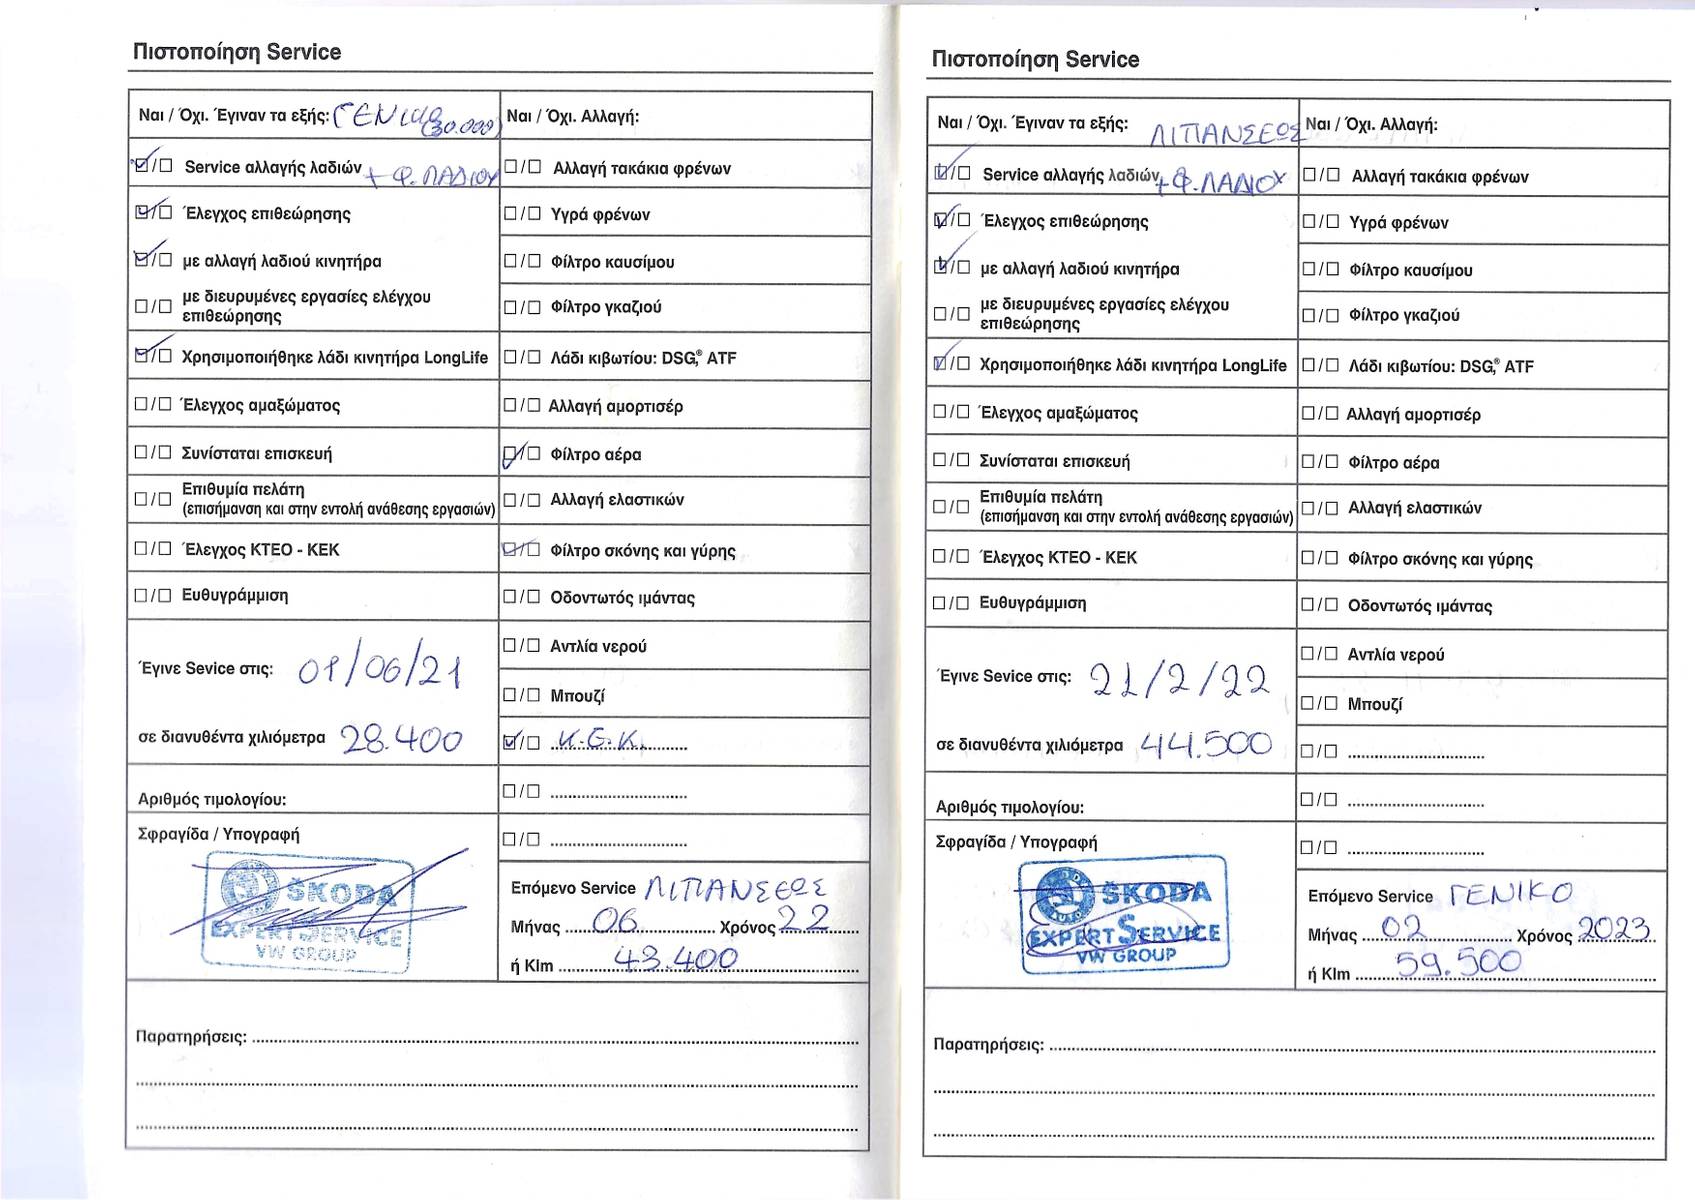 Πιστοποίηση Service
Ναι / Όχι. Έγιναν τα εξής: ΓΕΝΙΚΟ (30.000)
☑/☐ Service αλλαγής λαδιών + Φ. ΛΑΔΙΟΥ
☑/☐ Έλεγχος επιθεώρησης
☑/☐ με αλλαγή λαδιού κινητήρα
☐/☐ με διευρυμένες εργασίες ελέγχου
επιθεώρησης
☑/☐ Χρησιμοποιήθηκε λάδι κινητήρα LongLife
☐/☐ Έλεγχος αμαξώματος
☐/☐ Συνίσταται επισκευή
☐/☐ Επιθυμία πελάτη
(επισήμανση και στην εντολή ανάθεσης εργασιών)
☐/☐ Έλεγχος ΚΤΕΟ - ΚΕΚ
☐/☐ Ευθυγράμμιση
Έγινε Sevice στις: 01/06/21
σε διανυθέντα χιλιόμετρα 28.400
Αριθμός τιμολογίου:
Σφραγίδα / Υπογραφή
ŠKODA
EXPERT SERVICE
VW GROUP
Ναι / Όχι. Αλλαγή:
☐/☐ Αλλαγή τακάκια φρένων
☐/☐ Υγρά φρένων
☐/☐ Φίλτρο καυσίμου
☐/☐ Φίλτρο γκαζιού
☐/☐ Λάδι κιβωτίου: DSG,® ATF
☐/☐ Αλλαγή αμορτισέρ
☑/☐ Φίλτρο αέρα
☐/☐ Αλλαγή ελαστικών
☑/☐ Φίλτρο σκόνης και γύρης
☐/☐ Οδοντωτός ιμάντας
☐/☐ Αντλία νερού
☐/☐ Μπουζί
☑/☐ Κ.Θ.Κ.
☐/☐
☐/☐
Επόμενο Service ΛΙΠΑΝΣΕΩΣ
Μήνας 06 Χρόνος 22
ή Klm 43.400
Παρατηρήσεις:
Πιστοποίηση Service
Ναι / Όχι. Έγιναν τα εξής: ΛΙΠΑΝΣΕΩΣ
☑/☐ Service αλλαγής λαδιών + Φ. ΛΑΔΙΟΥ
☑/☐ Έλεγχος επιθεώρησης
☑/☐ με αλλαγή λαδιού κινητήρα
☐/☐ με διευρυμένες εργασίες ελέγχου
επιθεώρησης
☑/☐ Χρησιμοποιήθηκε λάδι κινητήρα LongLife
☐/☐ Έλεγχος αμαξώματος
☐/☐ Συνίσταται επισκευή
☐/☐ Επιθυμία πελάτη
(επισήμανση και στην εντολή ανάθεσης εργασιών)
☐/☐ Έλεγχος ΚΤΕΟ - ΚΕΚ
☐/☐ Ευθυγράμμιση
Έγινε Sevice στις: 21/2/22
σε διανυθέντα χιλιόμετρα 44.500
Αριθμός τιμολογίου:
Σφραγίδα / Υπογραφή
ŠKODA
EXPERT SERVICE
VW GROUP
Ναι / Όχι. Αλλαγή:
☐/☐ Αλλαγή τακάκια φρένων
☐/☐ Υγρά φρένων
☐/☐ Φίλτρο καυσίμου
☐/☐ Φίλτρο γκαζιού
☐/☐ Λάδι κιβωτίου: DSG,® ATF
☐/☐ Αλλαγή αμορτισέρ
☐/☐ Φίλτρο αέρα
☐/☐ Αλλαγή ελαστικών
☐/☐ Φίλτρο σκόνης και γύρης
☐/☐ Οδοντωτός ιμάντας
☐/☐ Αντλία νερού
☐/☐ Μπουζί
☐/☐
☐/☐
☐/☐
Επόμενο Service ΓΕΝΙΚΟ
Μήνας 02 Χρόνος 2023
ή Klm 59.500
Παρατηρήσεις: